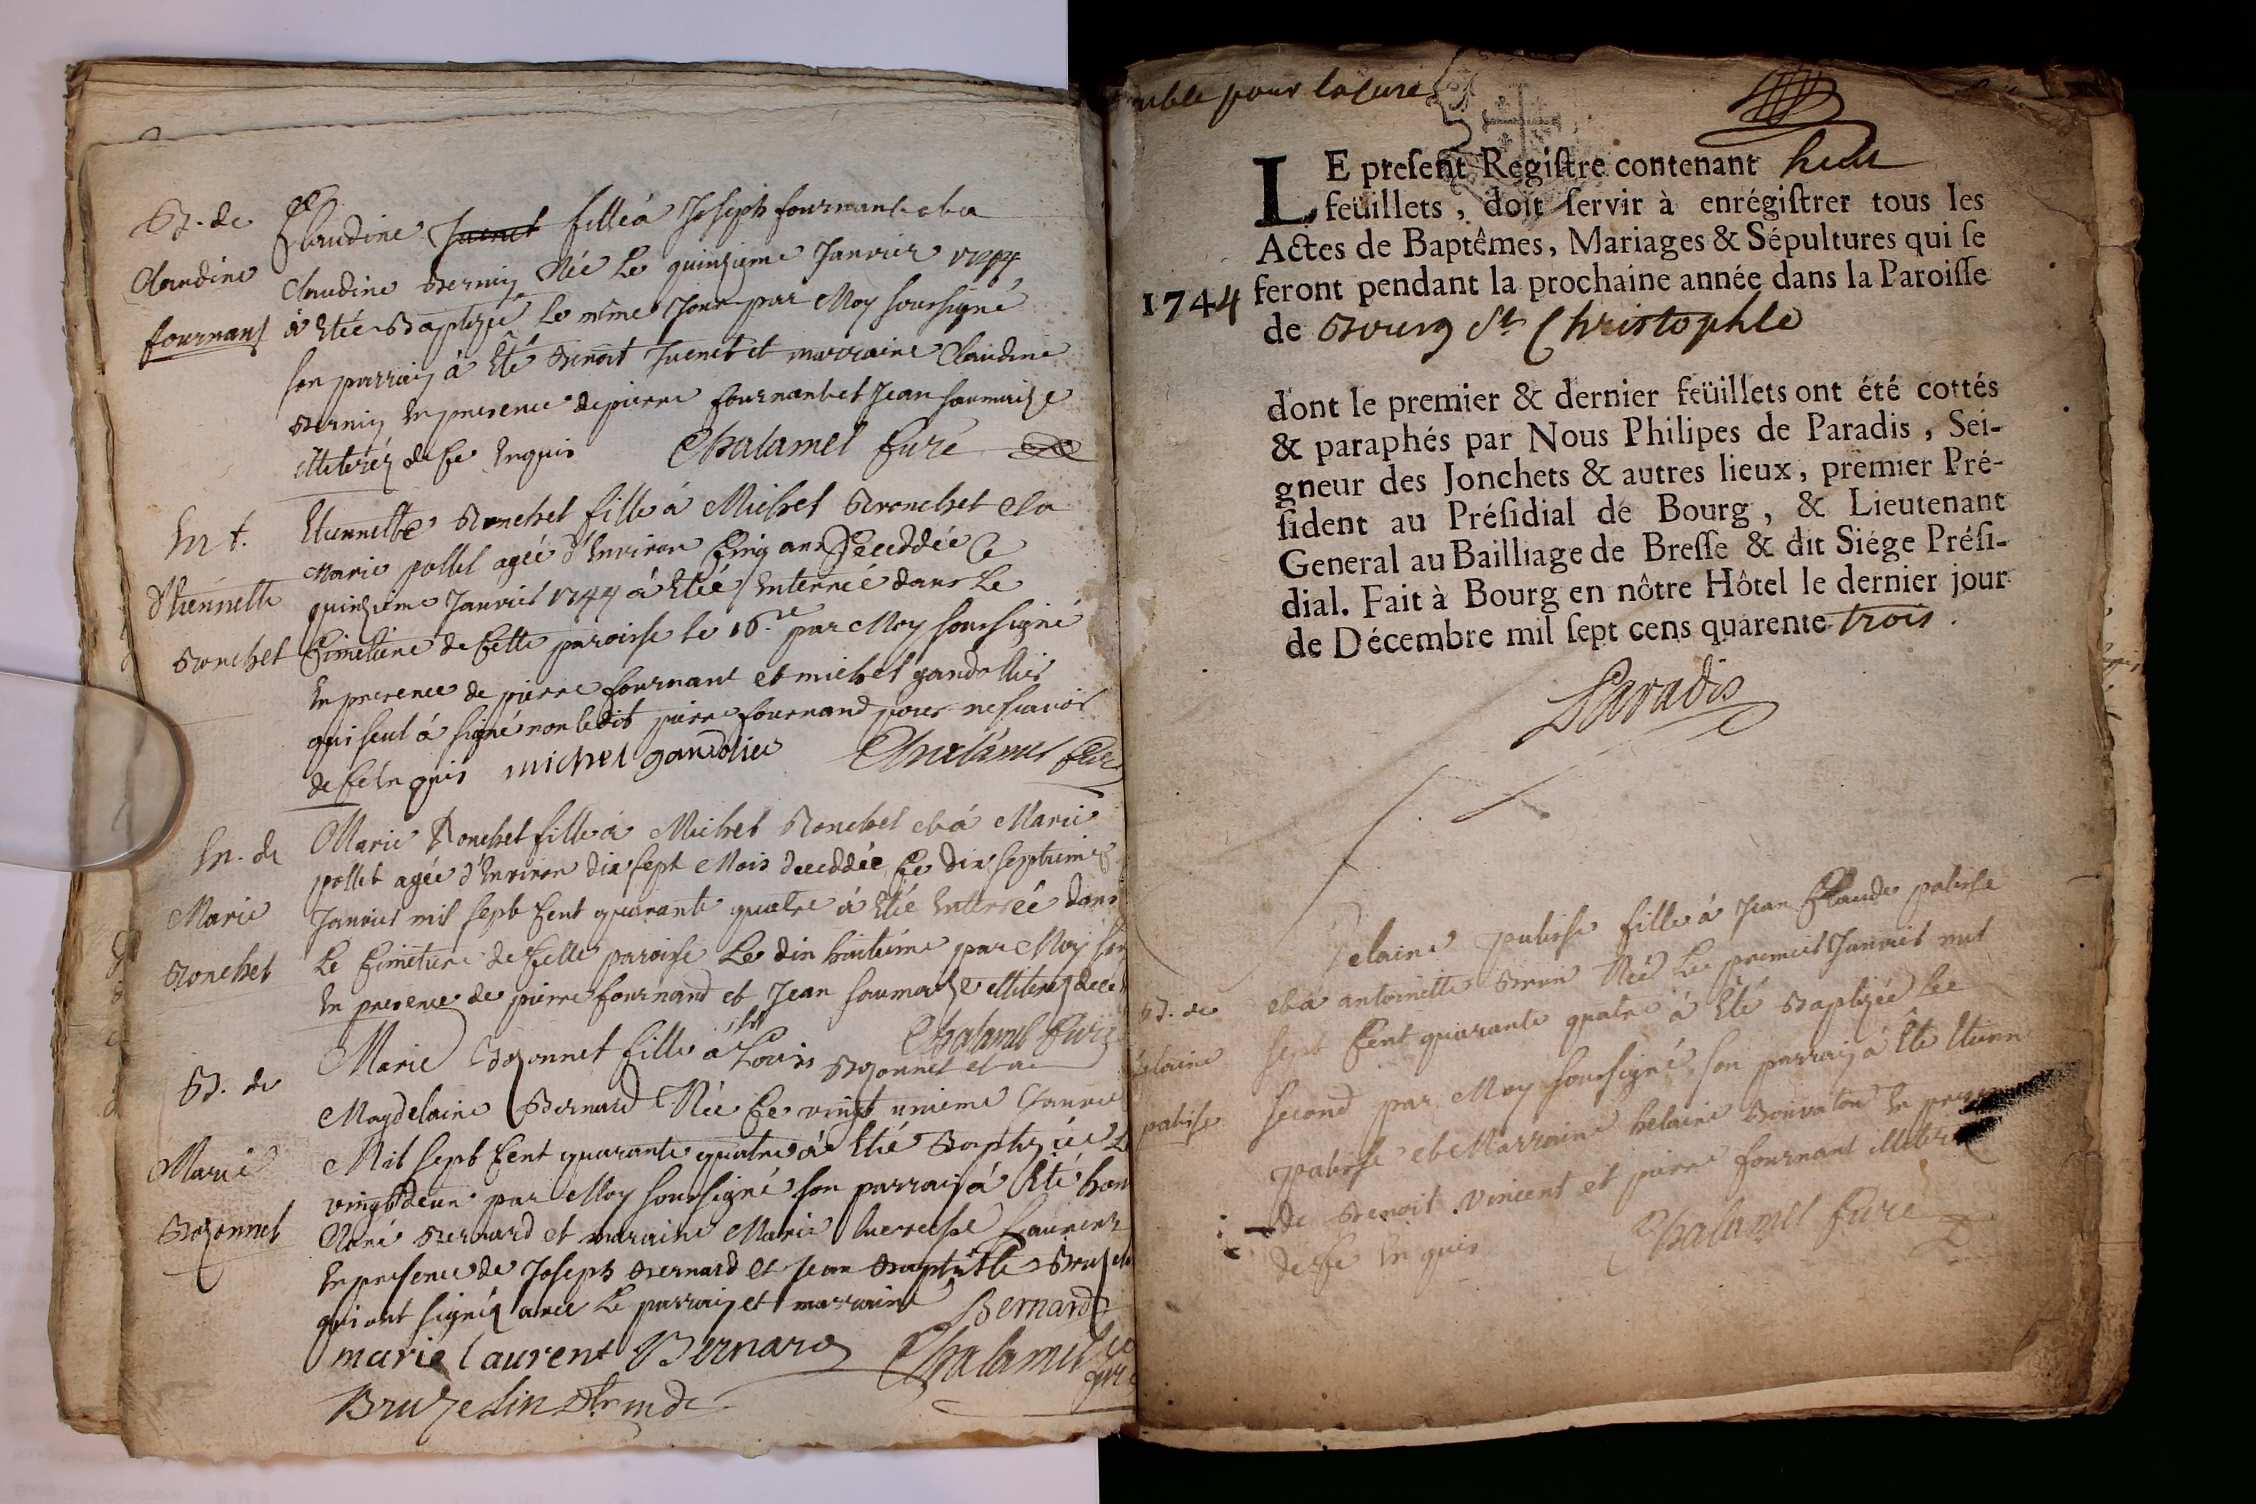 Bt. de
Claudine
fournant
Claudine Juenet fille à Joseph fournant et a
Claudine Bernin Née Le quinzieme Janvier 1744
à Etée Baptizée Le même Jour par Moy soussigné
son parrain à Eté Benoit Juenet et marraine Claudine
Bernin En presence de pierre fournant et Jean saumaize
illiterés de Ce Enquis Chalamel Curé
Ent.
d'Etiennette
Bronchet
Etiennette Bronchet fille à Michel Bronchet et a
Marie pollet agée d'Environ Cinq ans Deceddée Ce
quinzieme Janvier 1744 à Etée Enterrée dans Le
Cimetiere de Cette paroisse le 16.e par Moy soussigné
En presence de pierre fournant et michel gandollier
qui seul à signé non ledit pierre fournand pour ne scavoir
de Ce Enquis michel gandolier Chalamel Curé
En. de
Marie
Bronchet
Marie Bronchet fille à Michel Bronchet et à Marie
pollet agée d'Environ dix sept Mois deceddée Ce dix septieme
Janvier mil sept Cent quarante quatre à Eté Enterrée dans
Le Cimetiere de Cette paroisse Le dix huitieme par Moy
En presence de pierre fournand et Jean saumaize illiterés de Ce
Chalamel Curé
Bt. de
Marie
Bozonnet
Marie Bozonnet fille à Louis Bozonnet et a
Magdelaine Bernard Née Ce vingt unieme Janvier
Mil sept Cent quarante quatre à Eté Baptizée
vingt deux par Moy soussigné son parrain à Eté
Bernard et marraine Marie Laurent
En presence de Joseph Bernard et Jean Baptiste
qui ont signéz avec Le parrain et marraine Bernard
marie laurent Bernard Chalamel
Bruzelin
pour la Cure
LE present Registre contenant huit
feüillets, doit servir à enrégistrer tous les
Actes de Baptêmes, Mariages & Sépultures qui se
1744 feront pendant la prochaine année dans la Paroisse
de Bourg St Christophle
dont le premier & dernier feüillets ont été cottés
& paraphés par Nous Philipes de Paradis, Sei-
gneur des Jonchets & autres lieux, premier Pré-
sident au Présidial de Bourg, & Lieutenant
General au Bailliage de Bresse & dit Siége Prési-
dial. Fait à Bourg en nôtre Hôtel le dernier jour
de Décembre mil sept cens quarente trois.
Paradis
Bt. de
helaine
palisse
helaine palisse fille à Jean Claude palisse
et à antoinette Née Le premier Janvier mil
sept Cent quarante quatre à Eté Baptizée Le
second par Moy soussigné, son parrain à Eté Etienne
palisse et Marraine helaine En presence
de Benoit Vincent et pierre fournant illiterés
de Ce Enquis Chalamel Curé